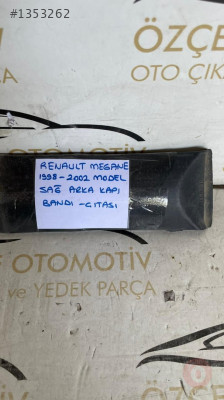 #1353262
ÖZÇE
OTO ÇIK
RENAULT MEGANE
1998-2002 MODEL
SAĞ ARKA KAPI
BANDI -CITASI
OTOMOTİV
ve YEDEK PARÇA
ÖZÇE